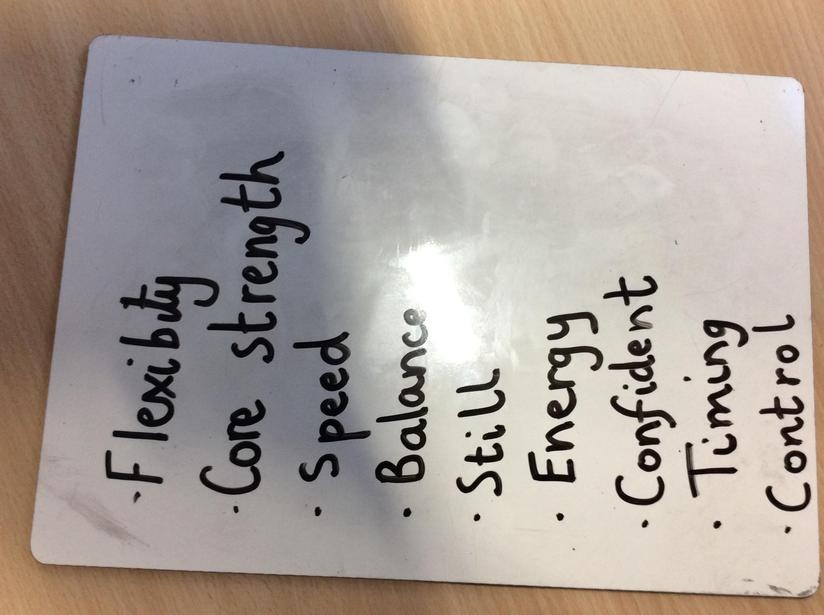 · Flexibity
· Core strength
· Speed
· Balance
· Still
· Energy
· Confident
· Timing
· Control